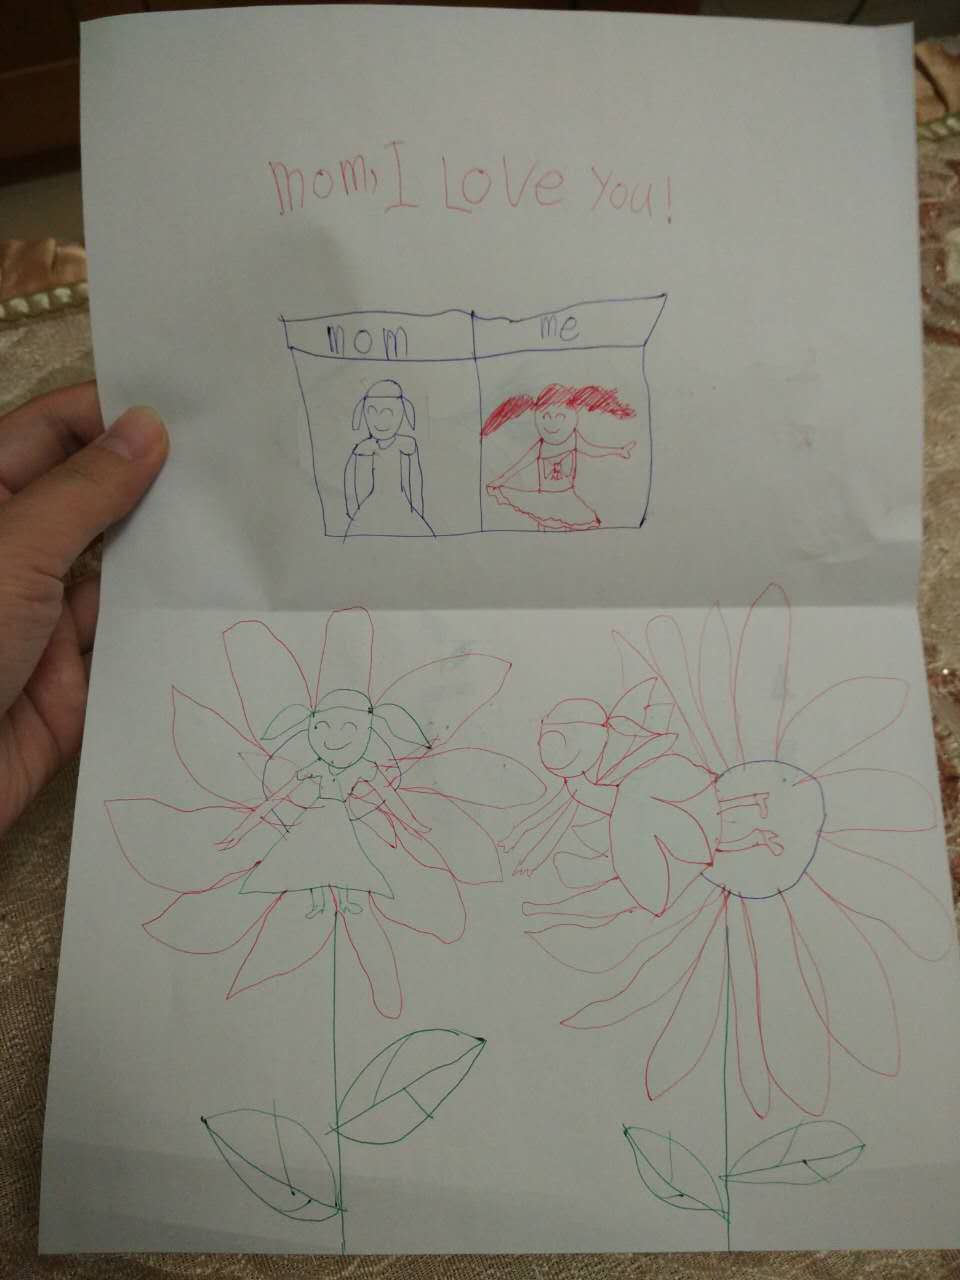 mom, I Love you!
mom me